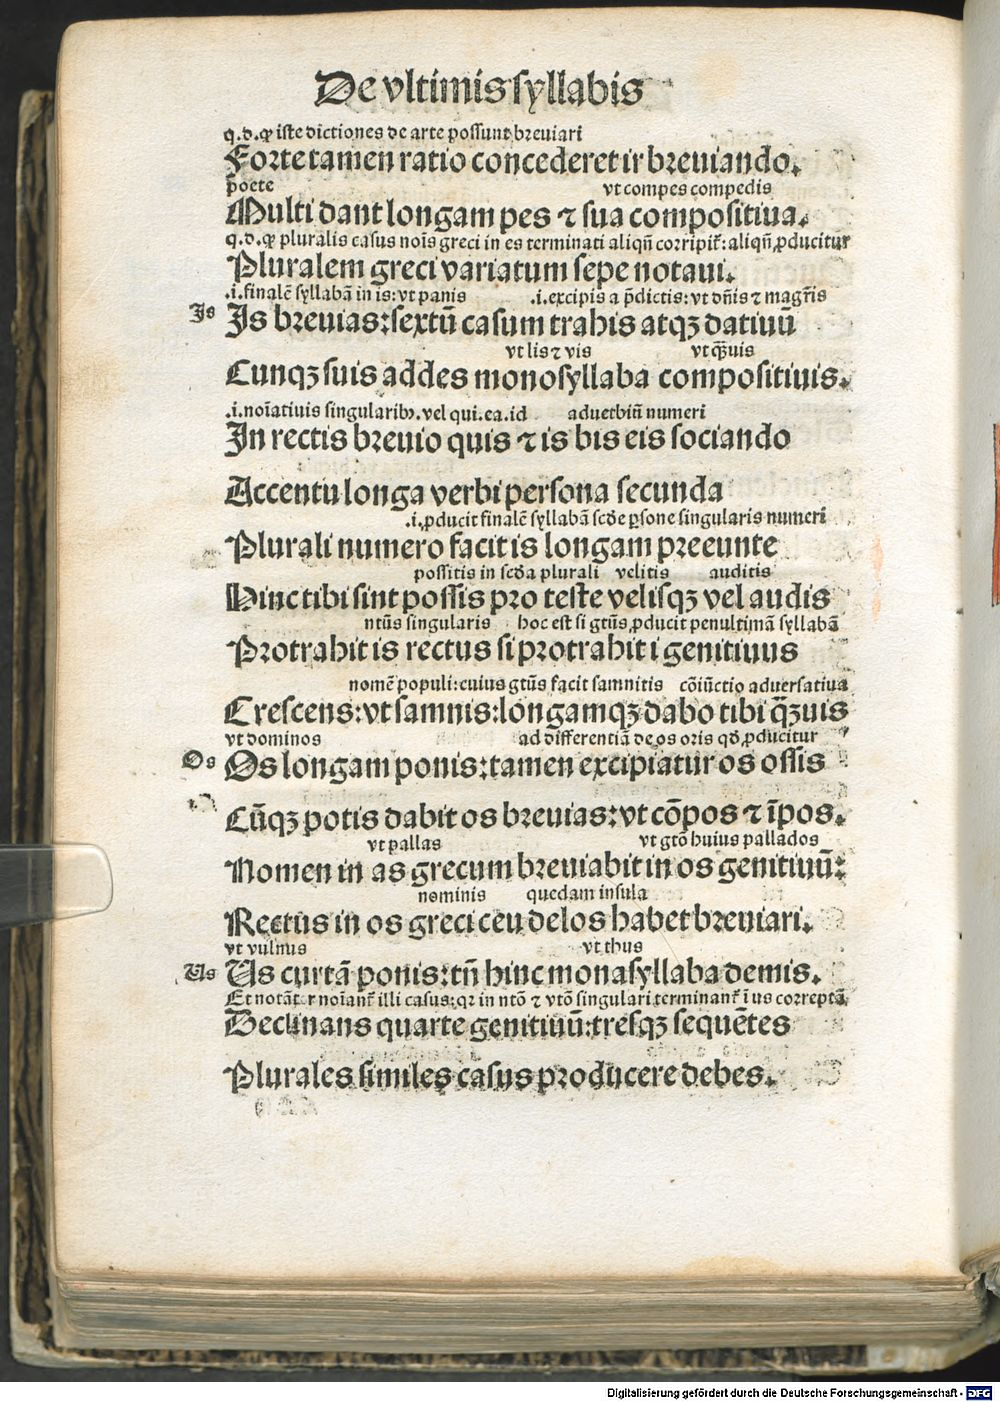 De vltimis syllabis
q.d.ꝙ iste dictiones de arte possunt breuiari
Forte tamen ratio concederet ir breuiando.
poete vt compes compedis
Multi dant longam pes ⁊ sua compositiua.
q.d.ꝙ pluralis casus noīs greci in es terminati aliqñ corripit᷑: aliqñ ꝓducitur
Pluralem greci variatum sepe notaui.
.i.finalē syllabā in is: vt panis .i.excipis a p̄dictis: vt dn̄is ⁊ magr̄is
Is Is breuias: sextū casum trahis atqꝫ datiuū
vt lis ⁊ vis vt qͣuis
Cunqꝫ suis addes monosyllaba compositiuis.
.i.noīatiuis singularibꝰ. vel qui.ea.id aduerbiū numeri
In rectis breuio quis ⁊ is bis eis sociando
Accentu longa verbi persona secunda
.i.ꝓducit finalē syllabā scd̄e ꝑsone singularis numeri
Plurali numero facit is longam preeunte
possitis in scd̄a plurali velitis auditis
Hinc tibi sint possis pro teste velisqꝫ vel audis
ntūs singularis hoc est si gtūs ꝓducit penultimā syllabā
Protrahit is rectus si protrahit i genitiuus
nomē populi: cuius gtūs facit samnitis cōiūctio aduersatiua
Crescens: vt samnis: longamqꝫ dabo tibi qͣꝫuis
vt dominos ad differentiā de os oris qd̄ ꝓducitur
Os Os longam ponis: tamen excipiatur os ossis
Cūqꝫ potis dabit os breuias: vt cōpos ⁊ īpos.
vt pallas vt gtō huius pallados
Nomen in as grecum breuiabit in os genitiuū:
nominis quedam insula
Rectus in os greci ceu delos habet breuiari.
vt vulnus vt thus
Us Us curtā ponis: tn̄ hinc monasyllaba demis.
Et notāt᷑ noīant᷑ illi casus: qr in ntō ⁊ vtō singulari terminant᷑ ī us correptā
Declinans quarte genitiuū: tresqꝫ sequētes
Plurales similes casus producere debes.
Digitalisierung gefördert durch die Deutsche Forschungsgemeinschaft - DFG